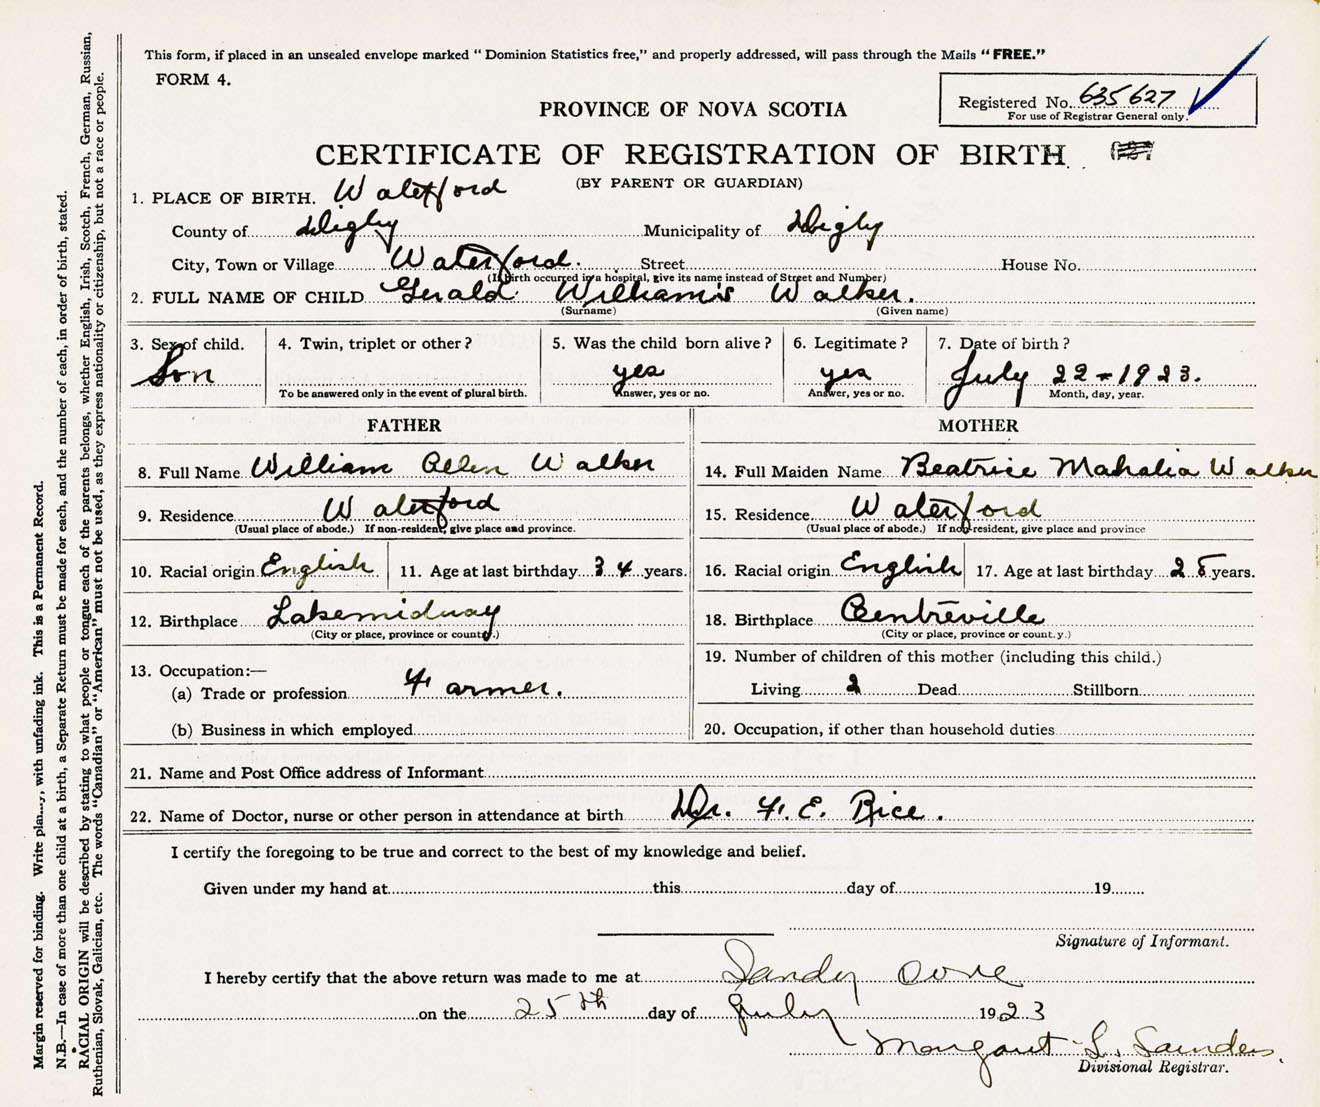 This form, if placed in an unsealed envelope marked " Dominion Statistics free," and properly addressed, will pass through the Mails "FREE."
FORM 4.
Registered No. 635627
For use of Registrar General only.
PROVINCE OF NOVA SCOTIA
CERTIFICATE OF REGISTRATION OF BIRTH
(BY PARENT OR GUARDIAN)
1. PLACE OF BIRTH. Waterford
County of Digby Municipality of Digby
City, Town or Village Waterford. Street House No.
(If birth occurred in a hospital, give its name instead of Street and Number)
2. FULL NAME OF CHILD Gerald Williams Walker.
(Surname) (Given name)
3. Sex of child. 4. Twin, triplet or other? 5. Was the child born alive? 6. Legitimate? 7. Date of birth?
Son yes yes July 22-1923.
To be answered only in the event of plural birth. Answer, yes or no. Answer, yes or no. Month, day, year.
FATHER MOTHER
8. Full Name William Allen Walker 14. Full Maiden Name Beatrice Mahalia Walker
9. Residence Waterford 15. Residence Waterford
(Usual place of abode.) If non-resident, give place and province. (Usual place of abode.) If non-resident, give place and province
10. Racial origin English 11. Age at last birthday 34 years. 16. Racial origin English 17. Age at last birthday years.
12. Birthplace Lakemidway 18. Birthplace Centreville
(City or place, province or county.) (City or place, province or count.y.)
13. Occupation:— 19. Number of children of this mother (including this child.)
(a) Trade or profession Farmer. Living 2 Dead Stillborn
(b) Business in which employed 20. Occupation, if other than household duties
21. Name and Post Office address of Informant
22. Name of Doctor, nurse or other person in attendance at birth Dr. F. E. Rice.
I certify the foregoing to be true and correct to the best of my knowledge and belief.
Given under my hand at this day of 19
Signature of Informant.
I hereby certify that the above return was made to me at Sandy Cove
on the 25th day of July 1923
Margaret L. Saunders.
Divisional Registrar.
Margin reserved for binding. Write plainly, with unfading ink. This is a Permanent Record.
N.B.—In case of more than one child at a birth, a Separate Return must be made for each, and the number of each, in order of birth, stated.
RACIAL ORIGIN will be described by stating to what people or tongue each of the parents belongs, whether English, Irish, Scotch, French, German, Russian,
Ruthenian, Slovak, Galician, etc. The words "Canadian" or "American" must not be used, as they express nationality or citizenship, but not a race or people.